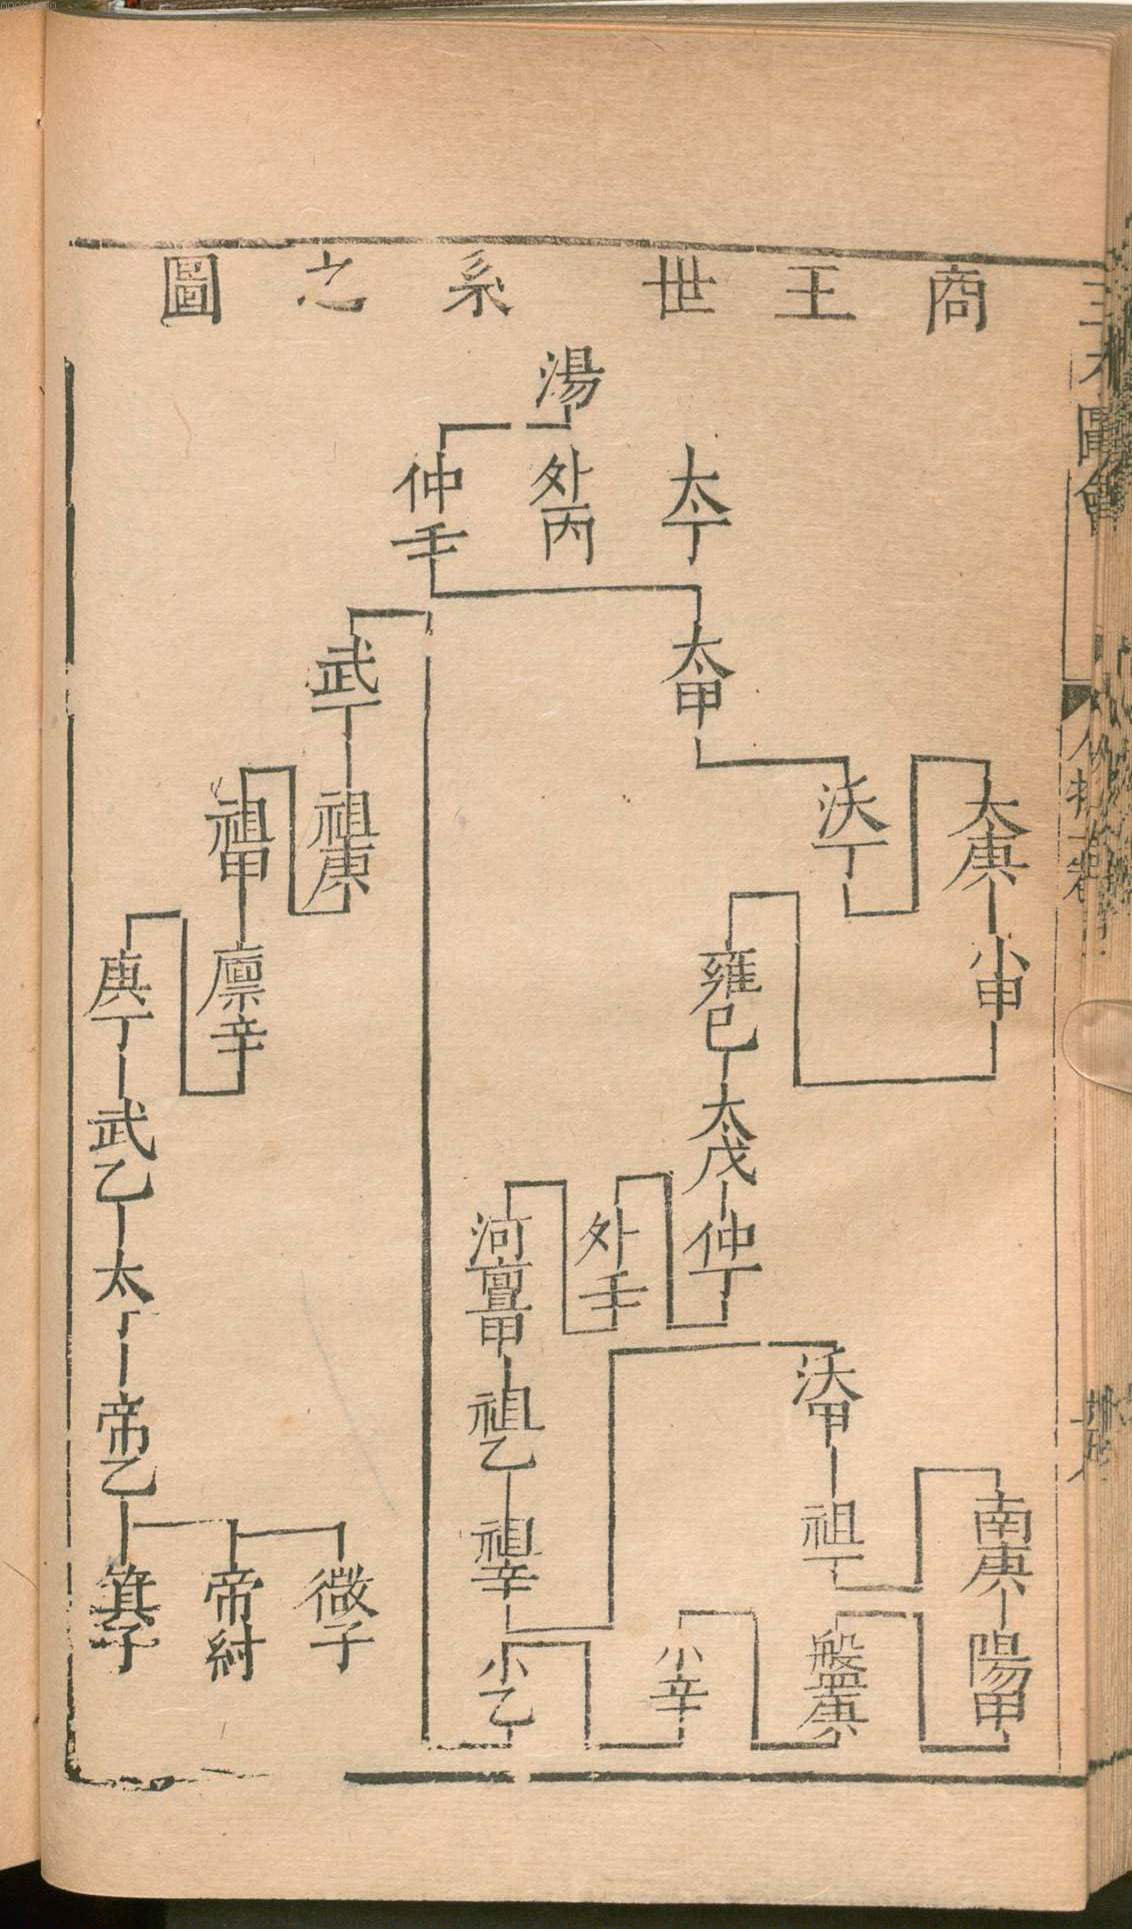 商王世系之圖
湯
太丁
外丙
仲壬
太甲
沃丁
太庚
小甲
雍巳
太戊
仲丁
外壬
河亶甲
祖乙
祖辛
沃甲
祖丁
南庚
陽甲
盤庚
小辛
小乙
武丁
祖庚
祖甲
廪辛
庚丁
武乙
太丁
帝乙
箕子
帝紂
微子